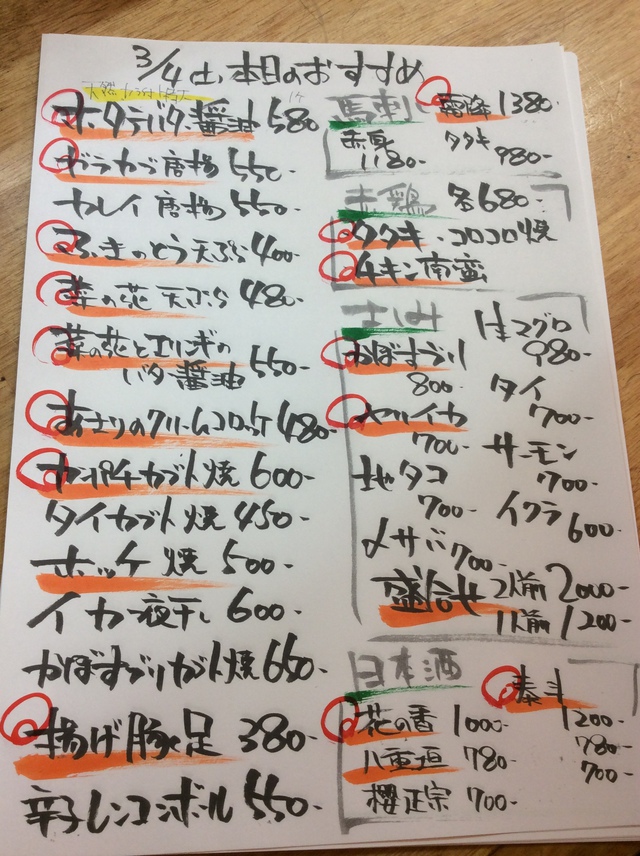 3/4土、本日のおすすめ
ホタテバター醤油 580
ガラカブ唐揚 550-
カレイ唐揚 550-
ふきのとう天ぷら 400-
菜の花天ぷら 480-
菜の花とエリンギの
バター醤油 550-
あさりのクリームコロッケ 480-
カンパチカブト焼 600-
タイカブト焼 450-
ホッケ焼 500-
イカ一夜干し 600-
かぼすブリカブト焼 650-
揚げ豚足 380-
辛子レンコンボール 550-
馬刺し 霜降 1380-
赤身 1180- タタキ 980-
赤鶏 各680-
タタキ・コロコロ焼
チキン南蛮
さしみ 生マグロ 980-
かぼすブリ 800-
タイ 700-
ヤリイカ 700-
サーモン 700-
地タコ 700-
イクラ 600-
〆サバ 700-
盛合せ 2人前 2000-
1人前 1200-
日本酒 泰斗
花の香 1000- 1200-
八重垣 780- 780-
櫻正宗 700- 700-